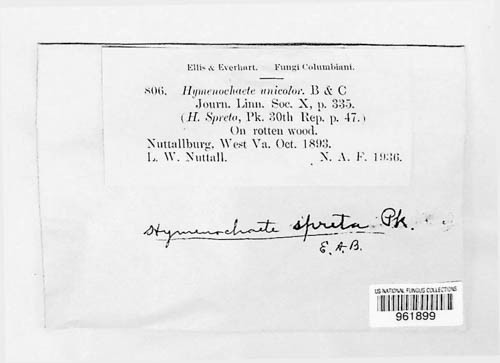 Ellis & Everhart. Fungi Columbiani.
806. Hymenochaete unicolor. B & C
Journ. Linn. Soc. X, p. 335.
(H. Spreta, Pk. 30th Rep. p. 47.)
On rotten wood.
Nuttallburg, West Va. Oct. 1893.
L. W. Nuttall. N. A. F. 1936.
Hymenochaete spreta Pk.
E. A. B.
US NATIONAL FUNGUS COLLECTIONS
961899